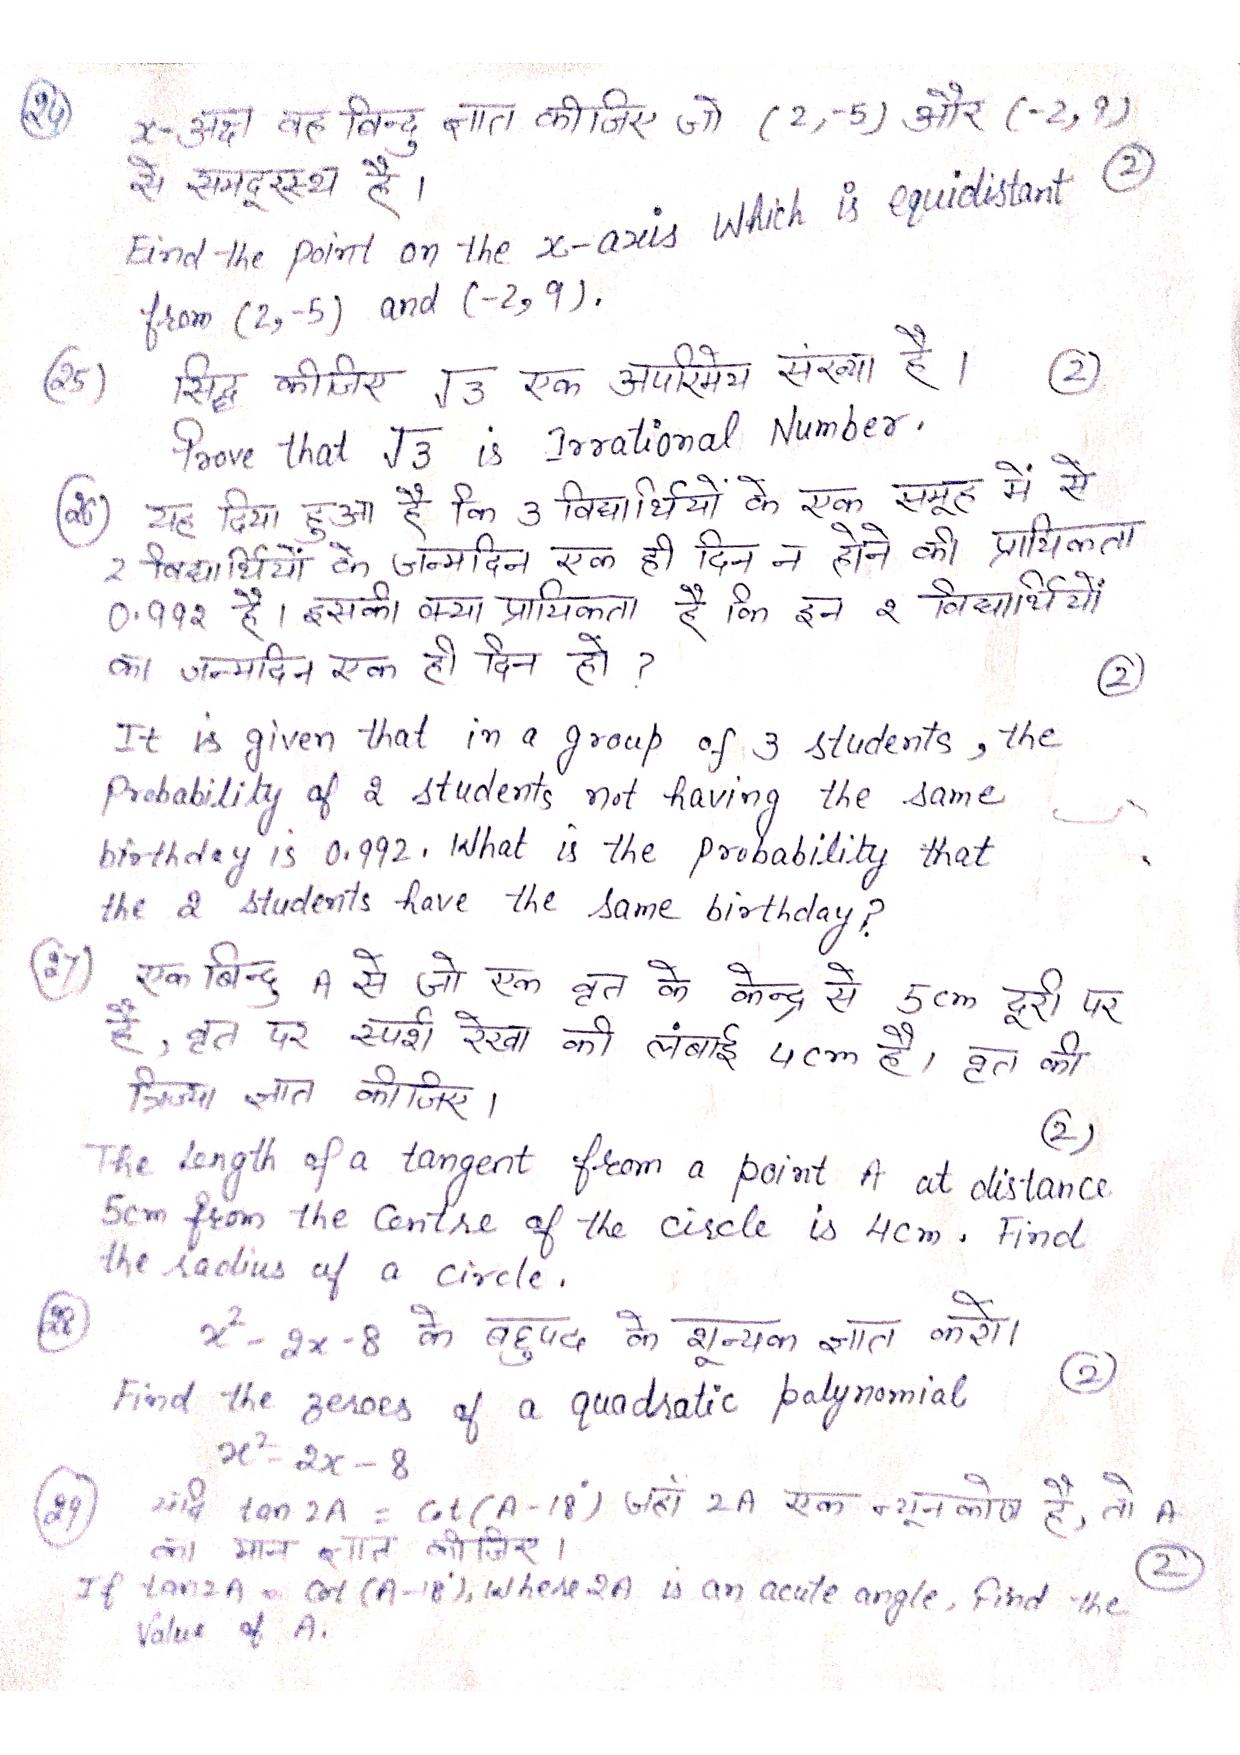 (24) x-अक्ष वह बिन्दु ज्ञात कीजिए जो (2,-5) और (-2,9)
से समदूरस्थ है। (2)
Find the point on the x-axis which is equidistant
from (2,-5) and (-2,9).
(25) सिद्ध कीजिए √3 एक अपरिमेय संख्या है। (2)
Prove that √3 is Irrational Number.
(26) यह दिया हुआ है कि 3 विद्यार्थियों के एक समूह में से
2 विद्यार्थियों के जन्मदिन एक ही दिन न होने की प्रायिकता
0.992 है। इसकी क्या प्रायिकता है कि इन 2 विद्यार्थियों
का जन्मदिन एक ही दिन हो? (2)
It is given that in a group of 3 students, the
Probability of 2 students not having the same
birthday is 0.992. What is the probability that
the 2 students have the same birthday?
(27) एक बिन्दु A से जो एक वृत के केन्द्र से 5cm दूरी पर
है, वृत पर स्पर्श रेखा की लंबाई 4cm है। वृत की
त्रिज्या ज्ञात कीजिए। (2)
The length of a tangent from a point A at distance
5cm from the centre of the circle is 4cm. Find
the radius of a circle.
(28) x²-2x-8 के बहुपद के शून्यक ज्ञात करो। (2)
Find the zeroes of a quadratic palynomial
x²-2x-8
(29) यदि tan 2A = Cot (A-18°) जहाँ 2A एक न्यूनकोण है, तो A
का मान ज्ञात कीजिए। (2)
If tan2A = Cot (A-18°), Where 2A is an acute angle, find the
Value of A.